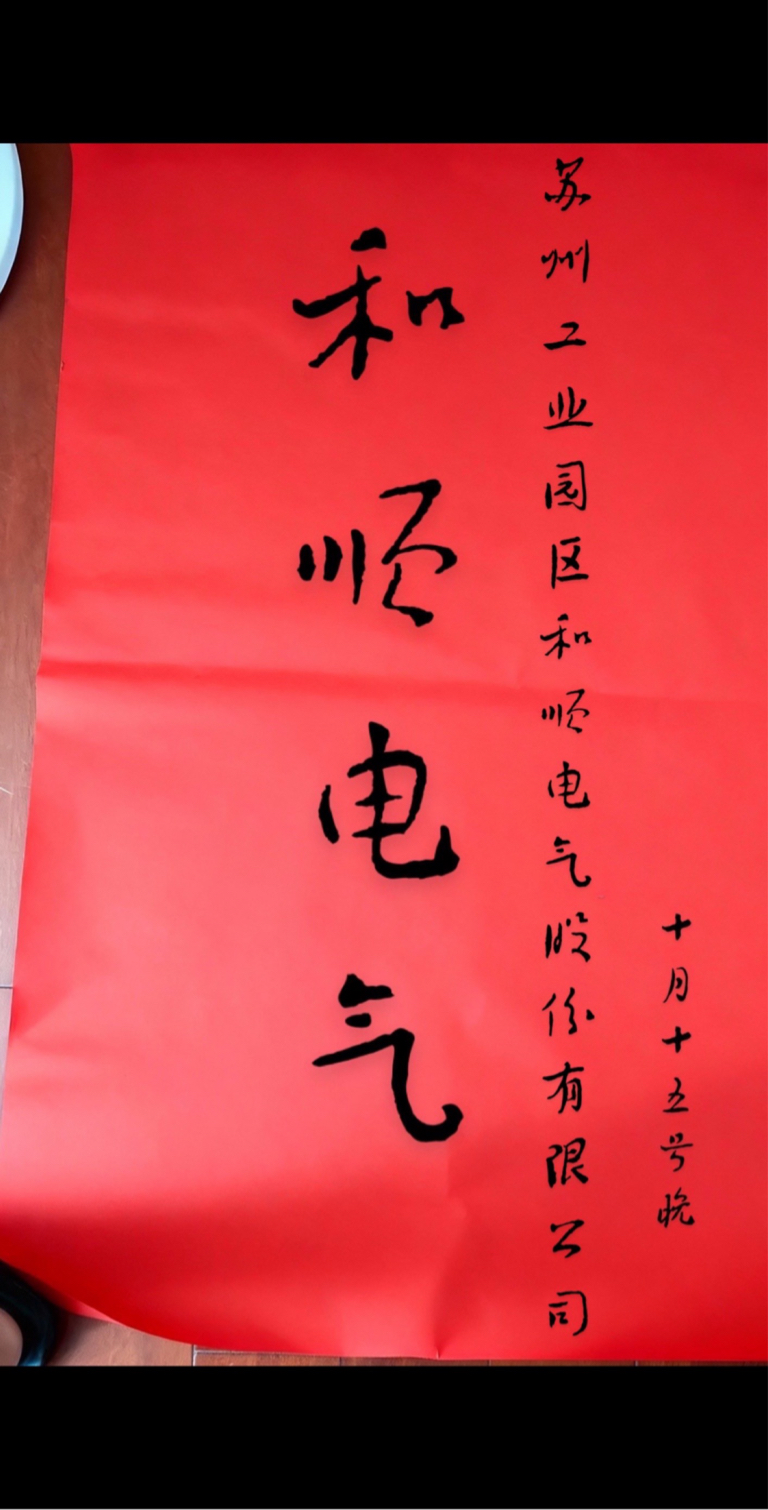 十月十五号晚
苏州工业园区和顺电气股份有限公司
和顺电气